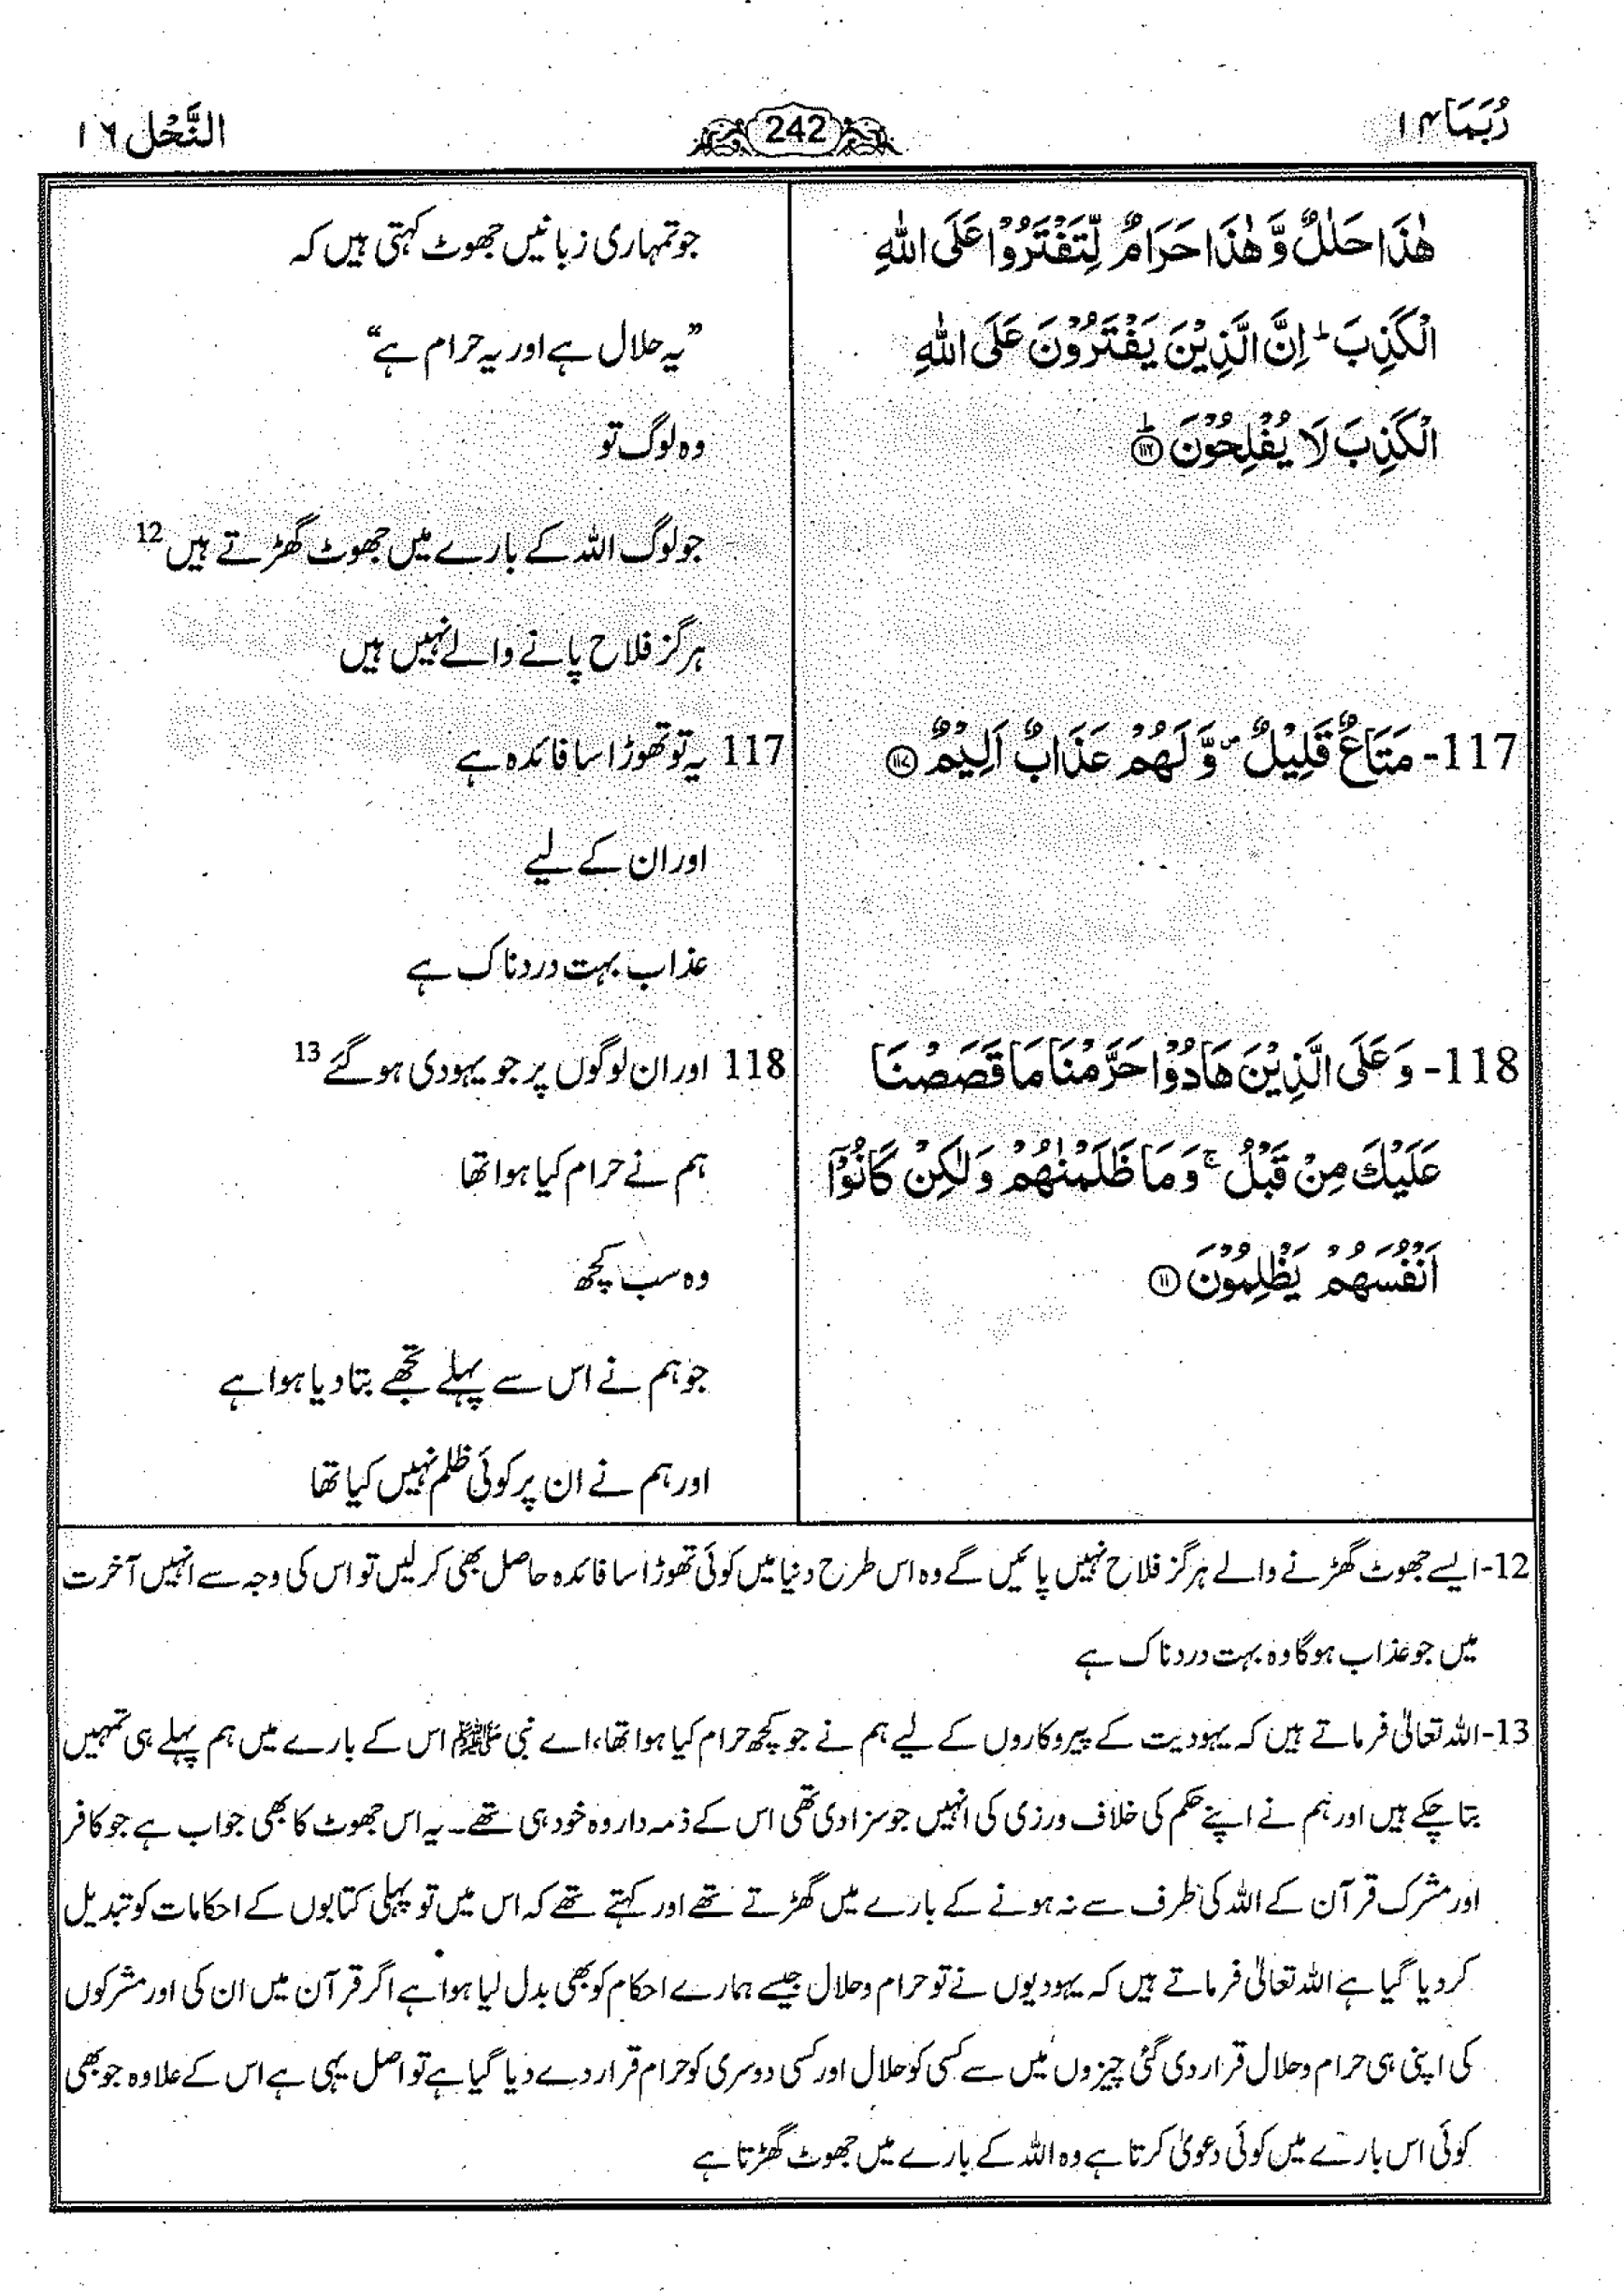 رُبَمَا ۱۴
242
النَّحْل ۱۶
هٰذَا حَلٰلٌ وَّ هٰذَا حَرَامٌ لِّتَفْتَرُوْا عَلَى اللّٰهِ
الْكَذِبَ ؕ اِنَّ الَّذِيْنَ يَفْتَرُوْنَ عَلَى اللّٰهِ
الْكَذِبَ لَا يُفْلِحُوْنَ ؕ ﴿۱۱۶﴾
117- مَتَاعٌ قَلِيْلٌ ۪ وَّ لَهُمْ عَذَابٌ اَلِيْمٌ ﴿۱۱۷﴾
118- وَ عَلَى الَّذِيْنَ هَادُوْا حَرَّمْنَا مَا قَصَصْنَا
عَلَيْكَ مِنْ قَبْلُ ۚ وَ مَا ظَلَمْنٰهُمْ وَلٰكِنْ كَانُوْۤا
اَنْفُسَهُمْ يَظْلِمُوْنَ ﴿۱۱﴾
جو تمہاری زبانیں جھوٹ کہتی ہیں کہ
”یہ حلال ہے اور یہ حرام ہے“
وہ لوگ تو
جو لوگ اللہ کے بارے میں جھوٹ گھڑتے ہیں 12
ہرگز فلاح پانے والے نہیں ہیں
117 یہ تو تھوڑا سا فائدہ ہے
اور ان کے لیے
عذاب بہت دردناک ہے
118 اور ان لوگوں پر جو یہودی ہو گئے 13
ہم نے حرام کیا ہوا تھا
وہ سب کچھ
جو ہم نے اس سے پہلے تجھے بتا دیا ہوا ہے
اور ہم نے ان پر کوئی ظلم نہیں کیا تھا
12-ایسے جھوٹ گھڑنے والے ہرگز فلاح نہیں پائیں گے وہ اس طرح دنیا میں کوئی تھوڑا سا فائدہ حاصل بھی کر لیں تو اس کی وجہ سے انہیں آخرت
میں جو عذاب ہوگا وہ بہت دردناک ہے
13-اللہ تعالیٰ فرماتے ہیں کہ یہودیت کے پیروکاروں کے لیے ہم نے جو کچھ حرام کیا ہوا تھا، اے نبی ﷺ اس کے بارے میں ہم پہلے ہی تمہیں
بتا چکے ہیں اور ہم نے اپنے حکم کی خلاف ورزی کی انہیں جو سزا دی تھی اس کے ذمہ دار وہ خود ہی تھے۔ یہ اس جھوٹ کا بھی جواب ہے جو کافر
اور مشرک قرآن کے اللہ کی طرف سے نہ ہونے کے بارے میں گھڑتے تھے اور کہتے تھے کہ اس میں تو پہلی کتابوں کے احکامات کو تبدیل
کر دیا گیا ہے اللہ تعالیٰ فرماتے ہیں کہ یہودیوں نے تو حرام و حلال جیسے ہمارے احکام کو بھی بدل لیا ہوا ہے اگر قرآن میں ان کی اور مشرکوں
کی اپنی ہی حرام و حلال قرار دی گئی چیزوں میں سے کسی کو حلال اور کسی دوسری کو حرام قرار دے دیا گیا ہے تو اصل یہی ہے اس کے علاوہ جو بھی
کوئی اس بارے میں کوئی دعویٰ کرتا ہے وہ اللہ کے بارے میں جھوٹ گھڑتا ہے